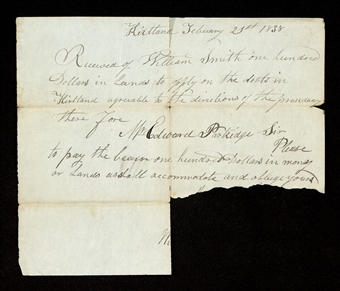 Kirtland February 21st 1838
Received of William Smith one hundred
Dollars in Lands to apply on the debts in
Kirtland agreable to the directions of the
there fore
Mr Edward Partridge Sir
Please
to pay the bearer one hundred Dollars in money
or Lands as accommodate and oblige yours